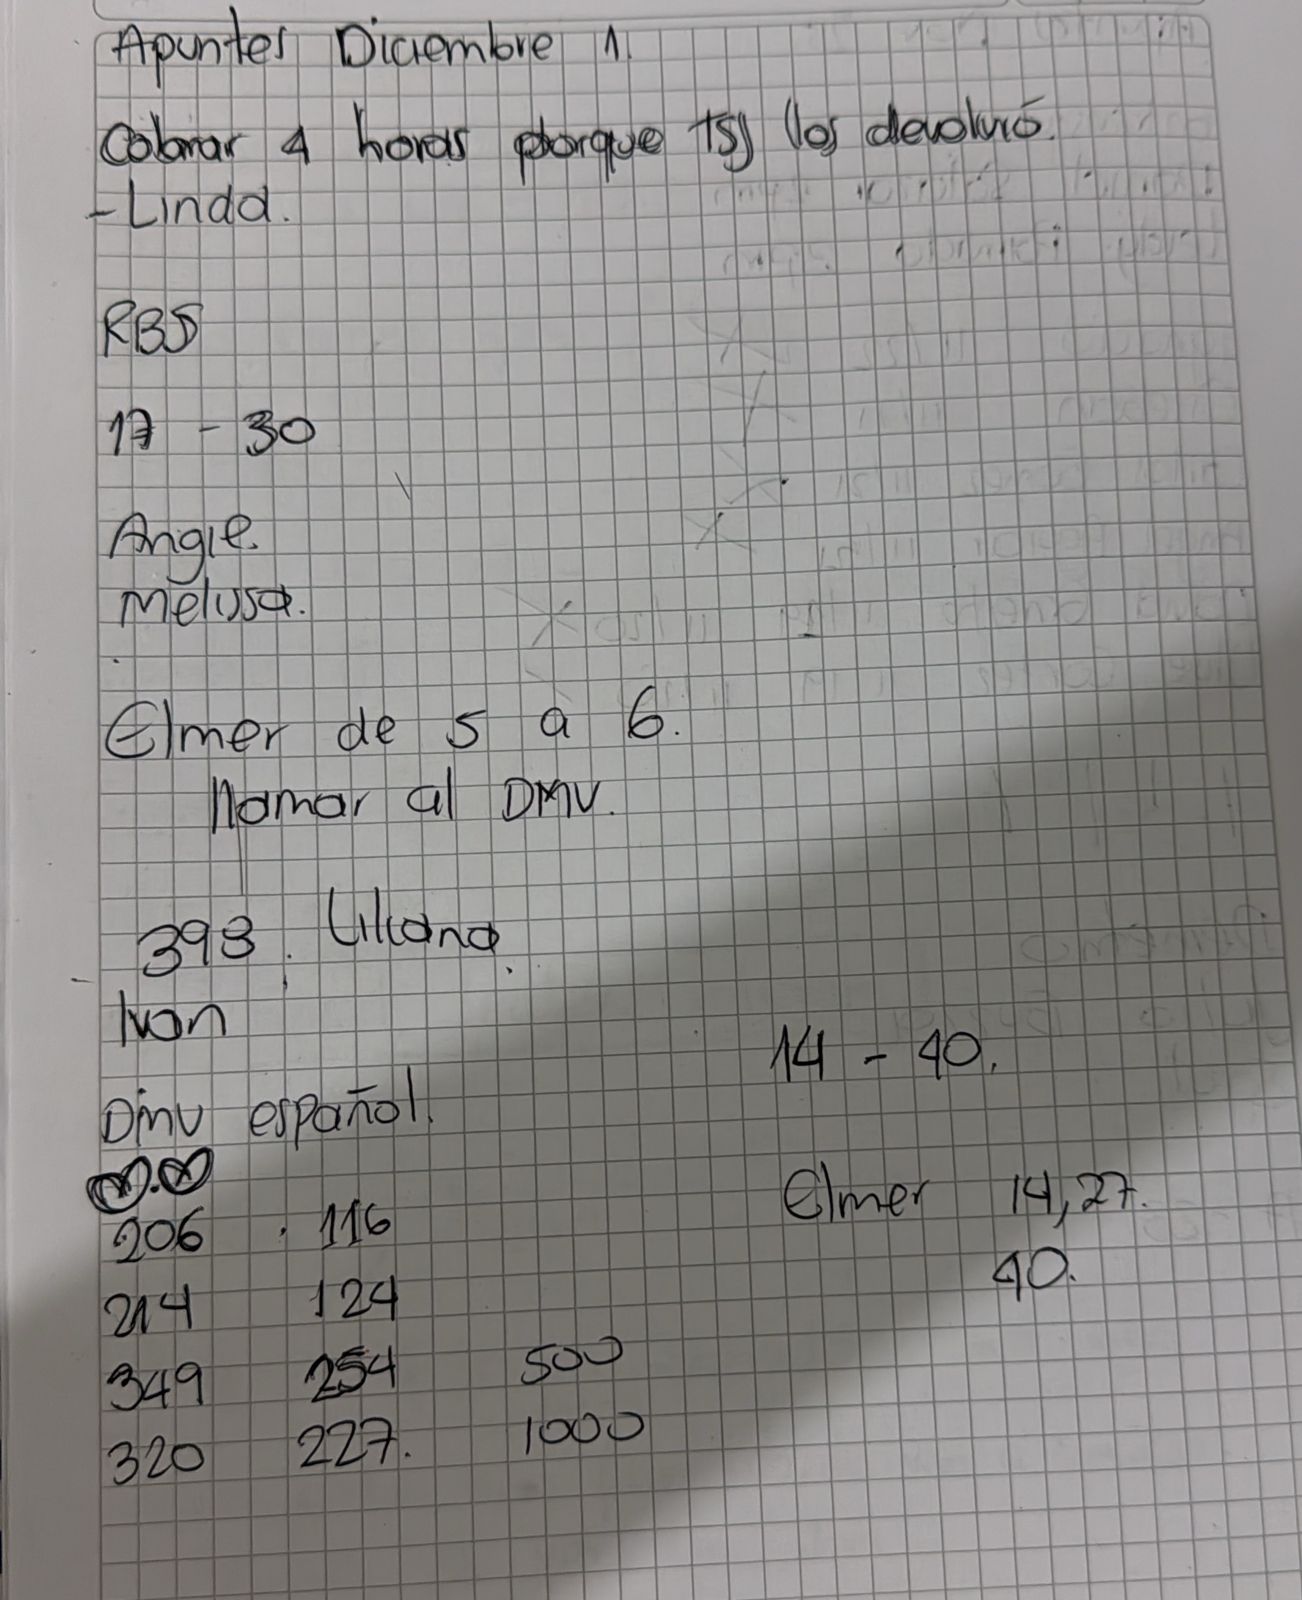 Apuntes Diciembre 1.
Cobrar 4 horas porque los devolvió.
- Linda.
RBS
17 - 30
Angie
Melissa.
Elmer de 5 a 6.
llamar al DMV.
398. Liliana
Ivan
14 - 40.
Dmv español.
Elmer 14, 27.
206 116
40.
214 124
349 254 500
320 227. 1000